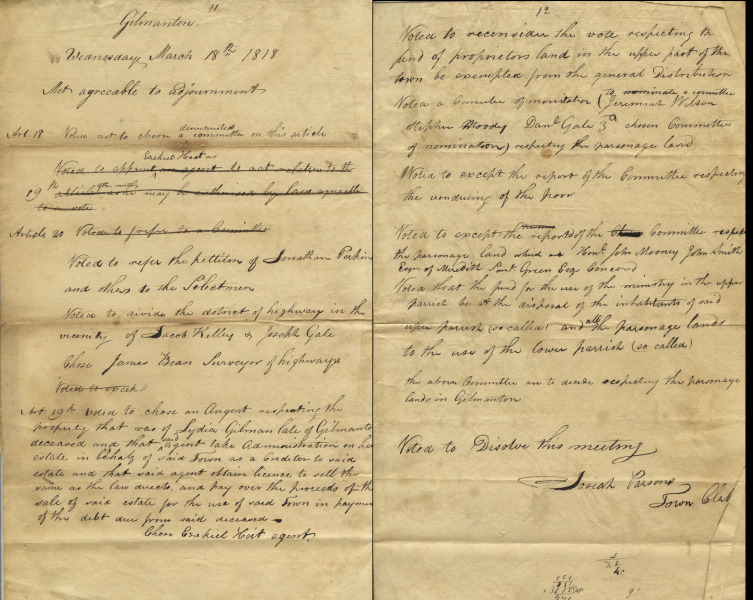 11
Gilmanton.
Wednesday March 18th 1818
Met agreeable to adjournment
Art. 18 Voted not to chose a committee on this article
Ezekiel Hoit as
Voted to appoint an agent to act relative to the
19th
to a vote
Article 20 Voted to prefer to a Committee
Voted to refer the petition of Jonathan Perkins
and others to the Selectmen
Voted to divide the district of highway in the
vicinity of Jacob Kelley & Joseph Gale
Chose James Bean Surveyor of highways
Voted to
Art. 19th Voted to chose an Angent respecting the
property that was of Lydia Gilman late of Gilmanton
deceased and that said agent take Administration on her
estate in behalf of said Town as a Creditor to said
estate and that said agent obtain licence to sell the
same as the law directs, and pay over the proceeds of the
sale of said estate for the use of said Town in payment
of the debt due from said deceased
Chose Ezekiel Hoit agent.
12
Voted to reconsider the vote respecting the
fund of proprietors land in the upper part of the
town be exempted from the general Distribution
to nominate a committee
Voted a Comittee of (Jeremiah Wilson
Stephen Moody Danl Gale 3d chosen Committee
of nomination) respecting the parsonage land
Voted to except the report of the Committee respecting
the venduing of the poor
Voted to except the report of the Committee respect
the parsonage land which is Honl John Mooney John Smith
Esqr of Meredith Saml Green Esq Concord
Voted that the fund for the use of the ministry in the upper
parrish be at the disposal of the inhabitants of said
upper parrish (so called) and all the parsonage lands
to the use of the lower parrish (so called)
the above Committee are to decide respecting the parsonage
lands in Gilmanton
Voted to Disolve this meeting
Josiah Parsons
Town Clerk